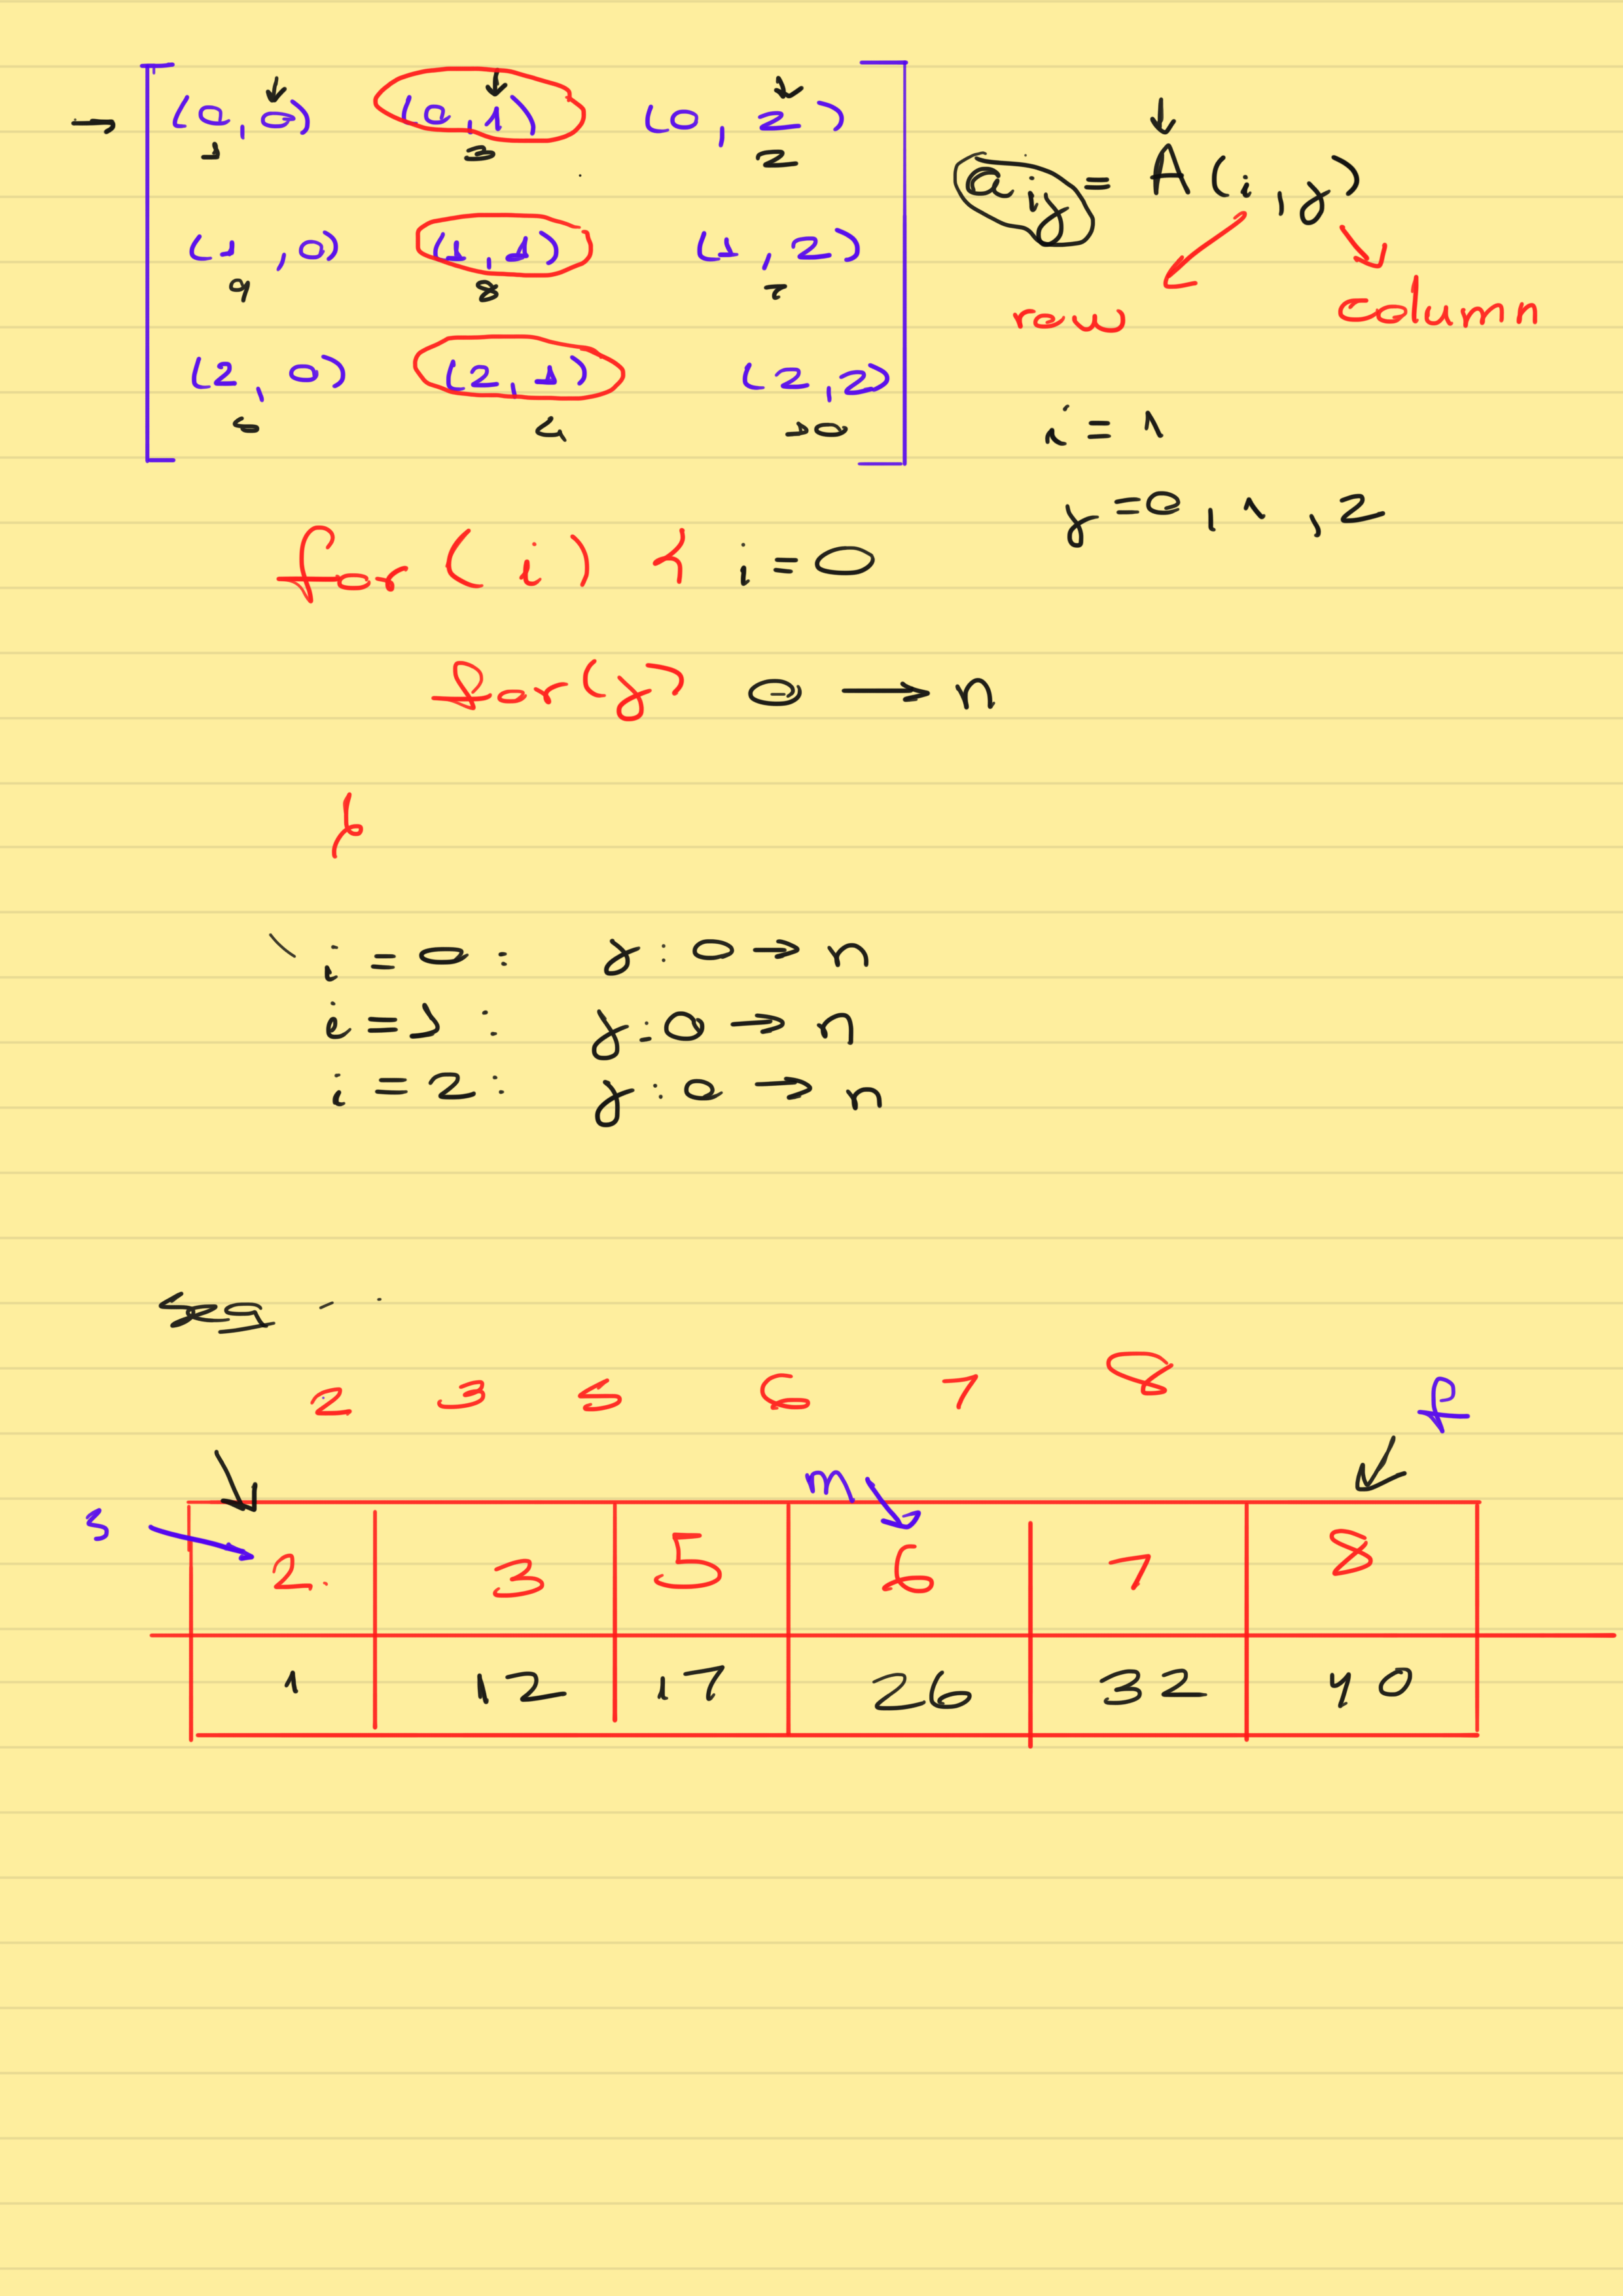 (0,0) (0,1) (0,2)
1 3 2
(1,0) (1,1) (1,2)
9 8 7
(2,0) (2,1) (2,2)
10
aij = A(i,j)
row column
i = 1
j = 0, 1, 2
for (i) { i = 0
for (j) 0 → n
}
i = 0 : j : 0 → n
i = 1 : j : 0 → n
i = 2 : j : 0 → n
2 3 5 6 7 8
f
m
s
2 3 5 6 7 8
1 12 17 26 32 40